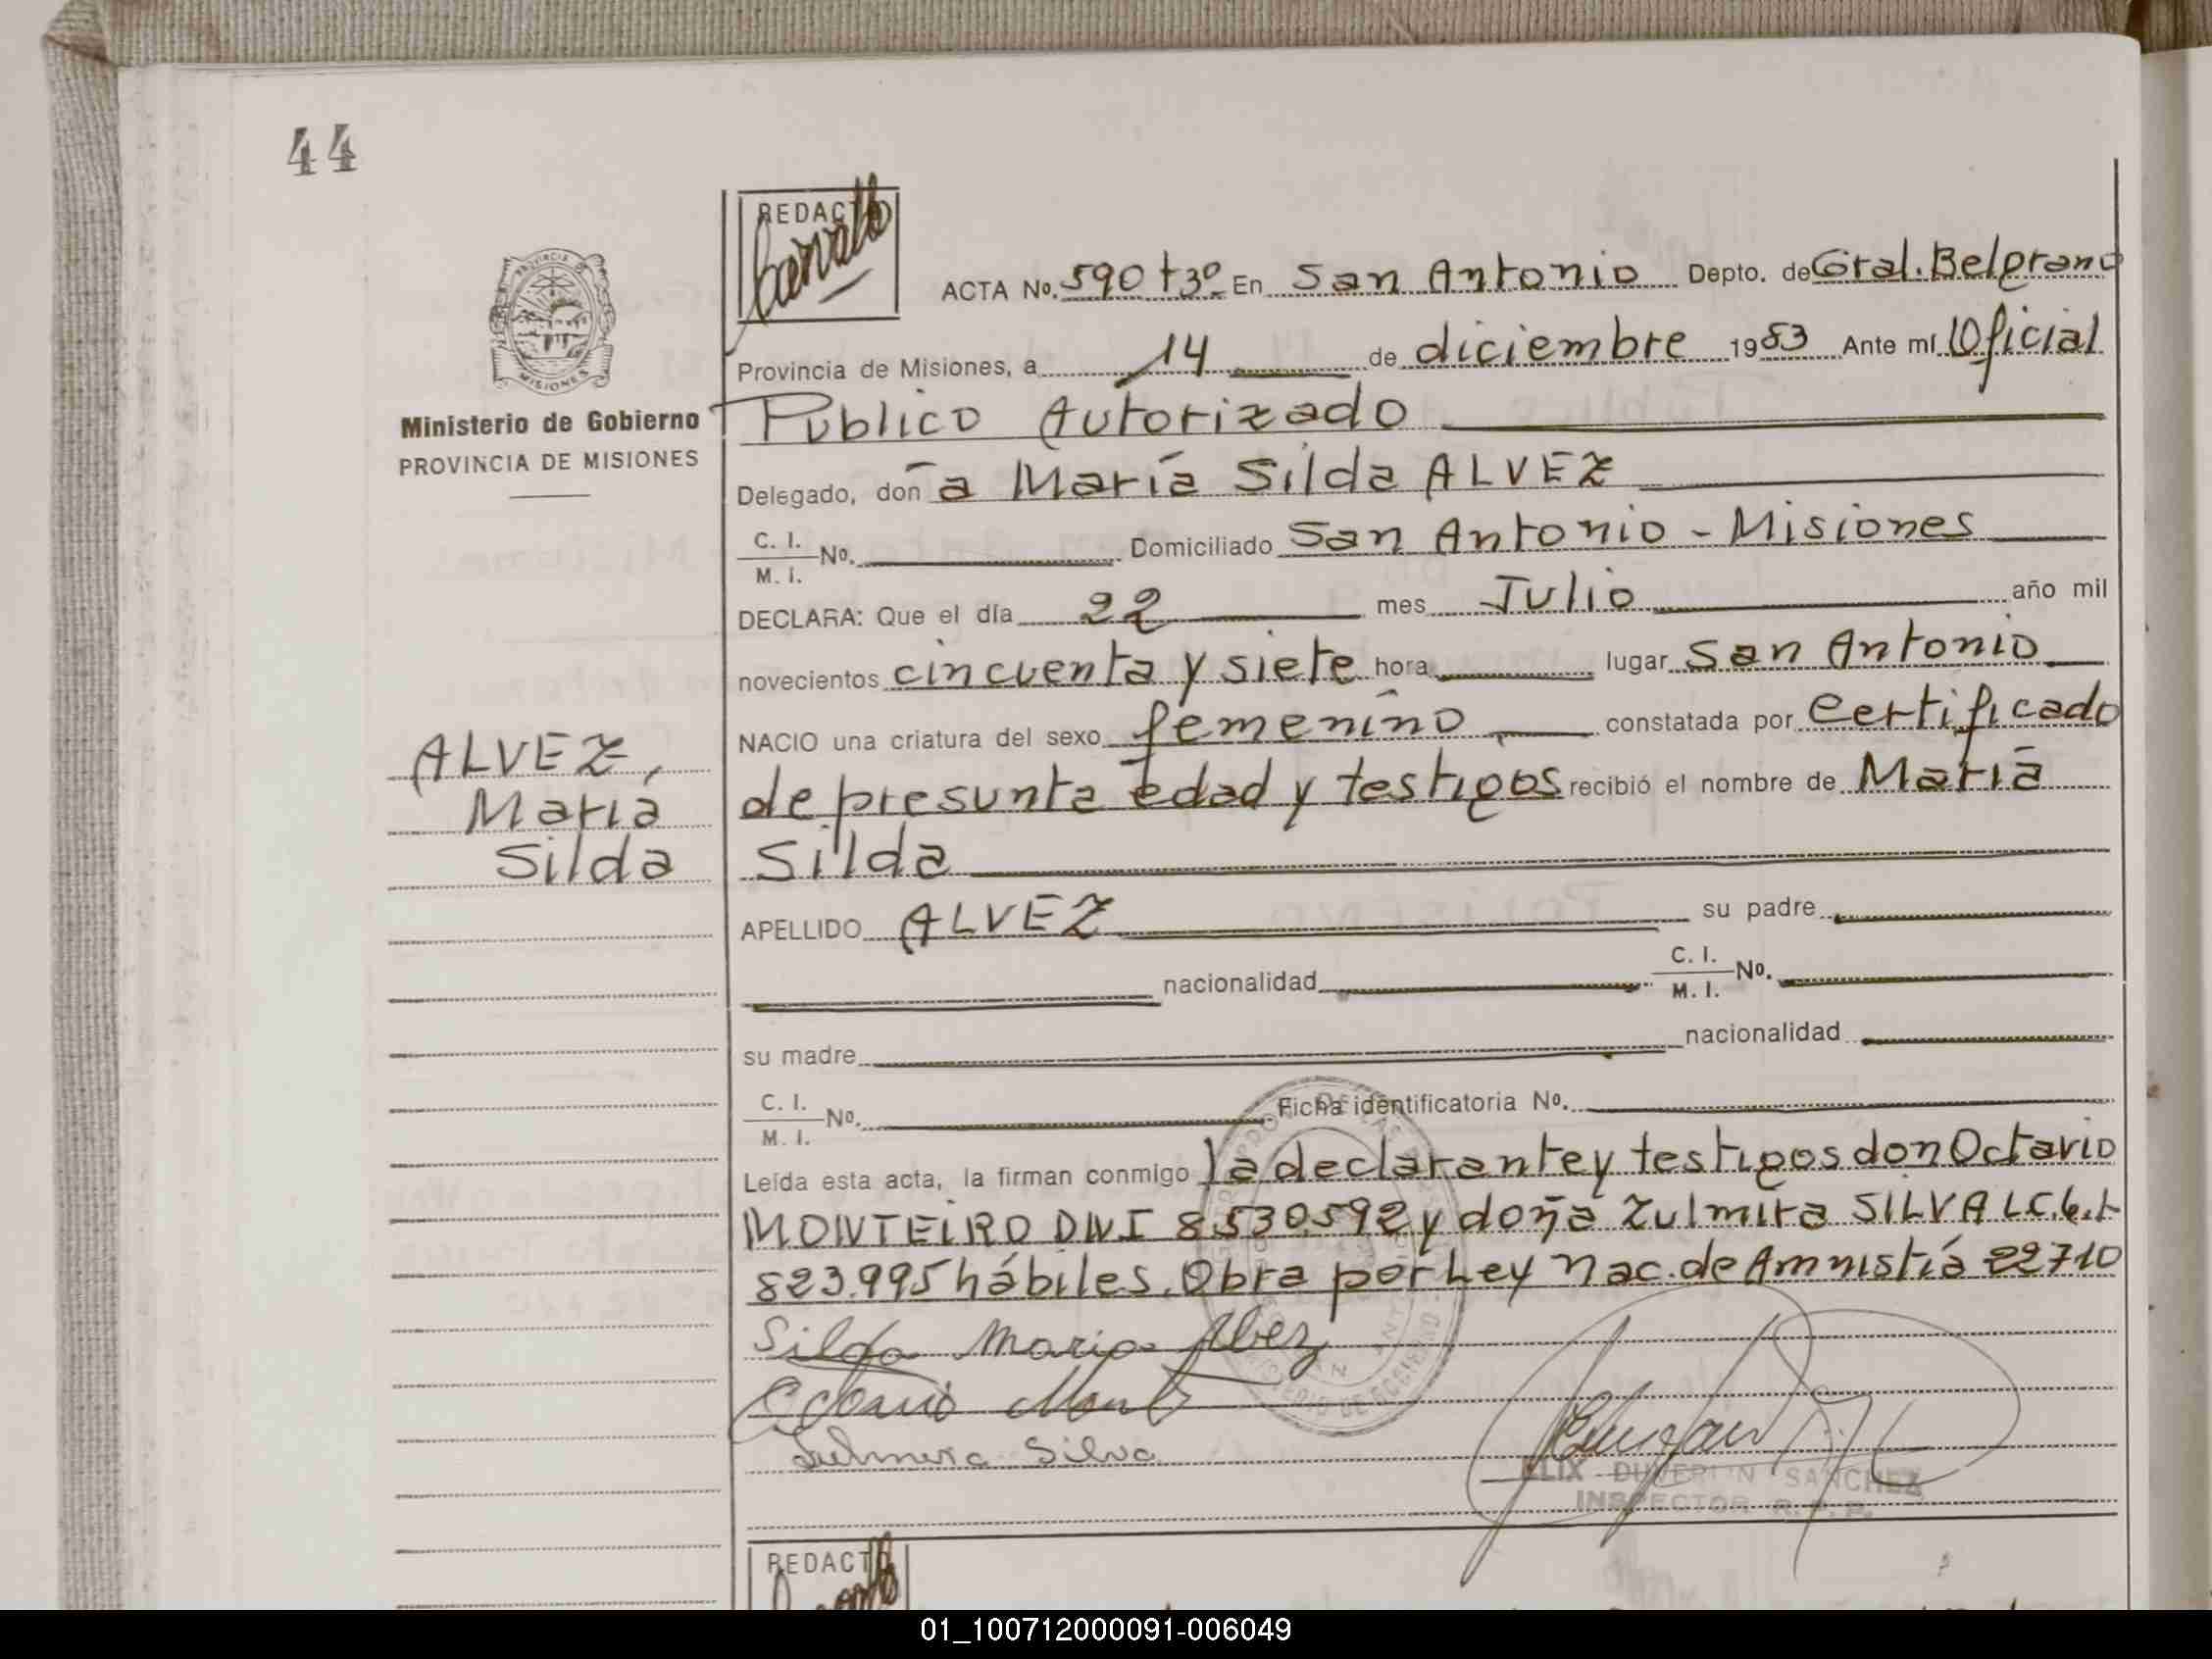 44
REDACTO
ACTA No. 590 t3º En San Antonio Depto. de Gral. Belgrano
Provincia de Misiones, a 14 de diciembre 1983 Ante mí Oficial
Ministerio de Gobierno
PROVINCIA DE MISIONES
Público Autorizado
Delegado, don a María Silda ALVEZ
C. I.
M. I. No. Domiciliado San Antonio - Misiones
DECLARA: Que el día 22 mes Julio año mil
novecientos cincuenta y siete hora lugar San Antonio
NACIO una criatura del sexo femenino constatada por Certificado
de presunta edad y testigos recibió el nombre de María
Silda
ALVEZ,
María
Silda
APELLIDO ALVEZ su padre
nacionalidad C. I.
M. I. No.
su madre nacionalidad
C. I.
M. I. No. Ficha identificatoria No.
Leída esta acta, la firman conmigo la declarante y testigos don Octavio
MONTEIRO DNI 8.530.592 y doña Zulmira SILVA L.C.
823.995 hábiles. Obra por Ley Nac. de Amnistía 22710
Silda Maria Alvez
Silva
SANCHEZ
INSPECTOR R.P.P.
REDACTO
01_100712000091-006049